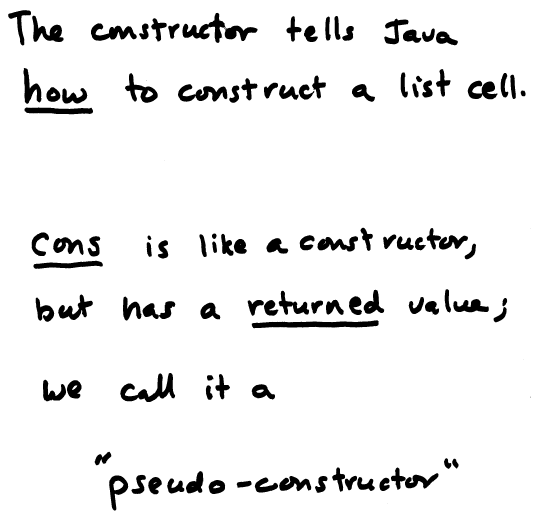 The constructor tells Java
how to construct a list cell.
Cons is like a constructor,
but has a returned value;
we call it a
"pseudo-constructor"